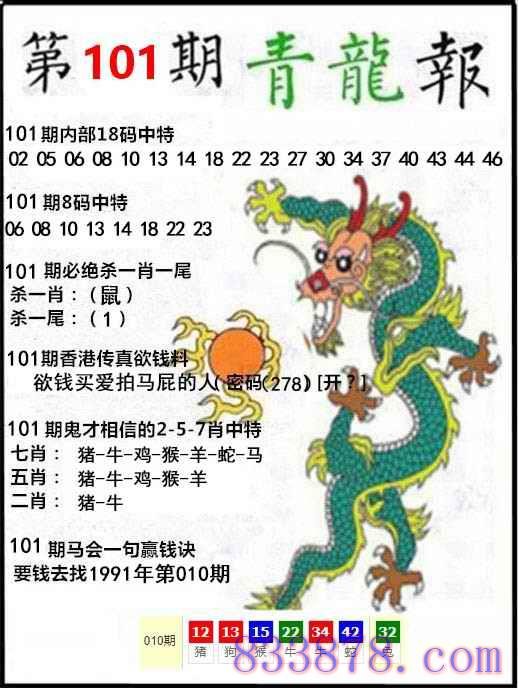 第101期 青龍報
101期内部18码中特
02 05 06 08 10 13 14 18 22 23 27 30 34 37 40 43 44 46
101期8码中特
06 08 10 13 14 18 22 23
101期必绝杀一肖一尾
杀一肖：（鼠）
杀一尾：（1）
101期香港传真欲钱料
欲钱买爱拍马屁的人(密码(278) [开？]
101期鬼才相信的2-5-7肖中特
七肖： 猪-牛-鸡-猴-羊-蛇-马
五肖： 猪-牛-鸡-猴-羊
二肖： 猪-牛
101期马会一句赢钱诀
要钱去找1991年第010期
010期 12 13 15 22 34 42 32
猪 狗 猴 牛 牛 蛇 兔
833878.com